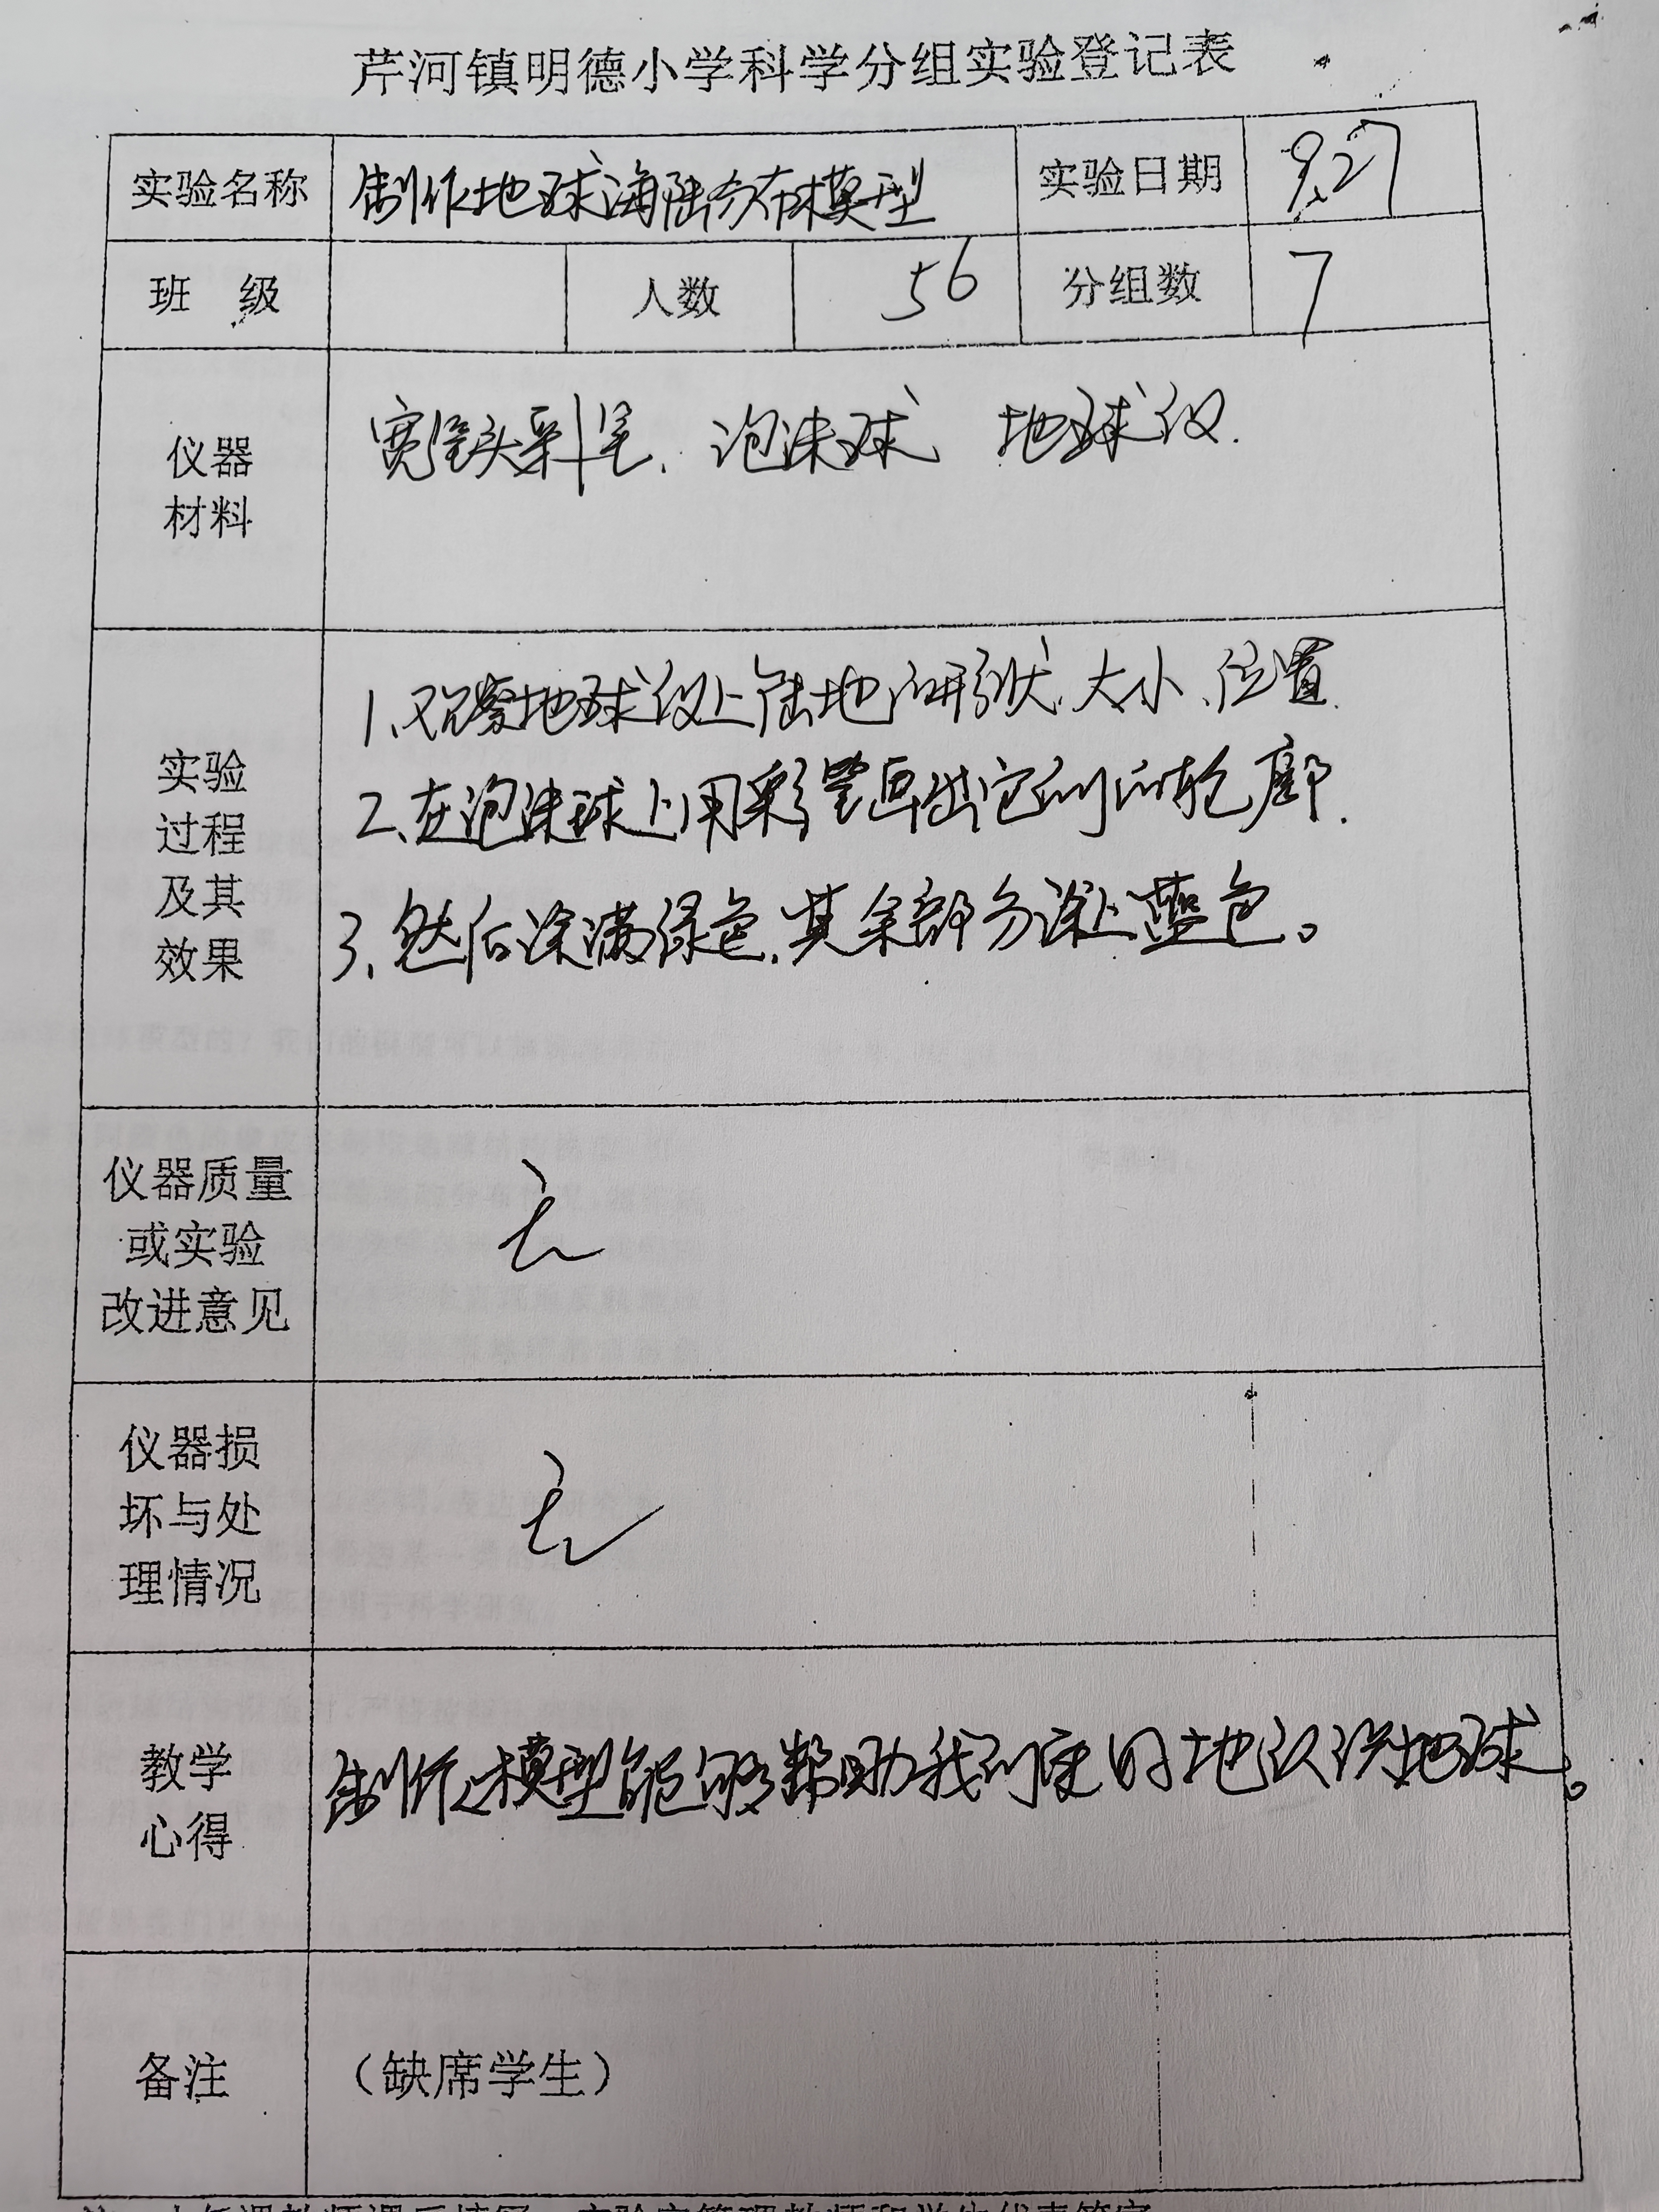 芹河镇明德小学科学分组实验登记表
实验名称 制作地球海陆分布模型 实验日期 9.27
班 级 人数 56 分组数 7
仪器 宽笔头彩笔、泡沫球、地球仪.
材料
1、观察地球仪上陆地的形状、大小、位置.
实验
2、在泡沫球上用彩笔画出它们的轮廓.
过程
及其
3、然后涂满绿色,其余部分涂上蓝色。
效果
仪器质量
或实验 无
改进意见
仪器损
坏与处 无
理情况
教学 制作模型能够帮助我们更好地认识地球。
心得
备注 (缺席学生)